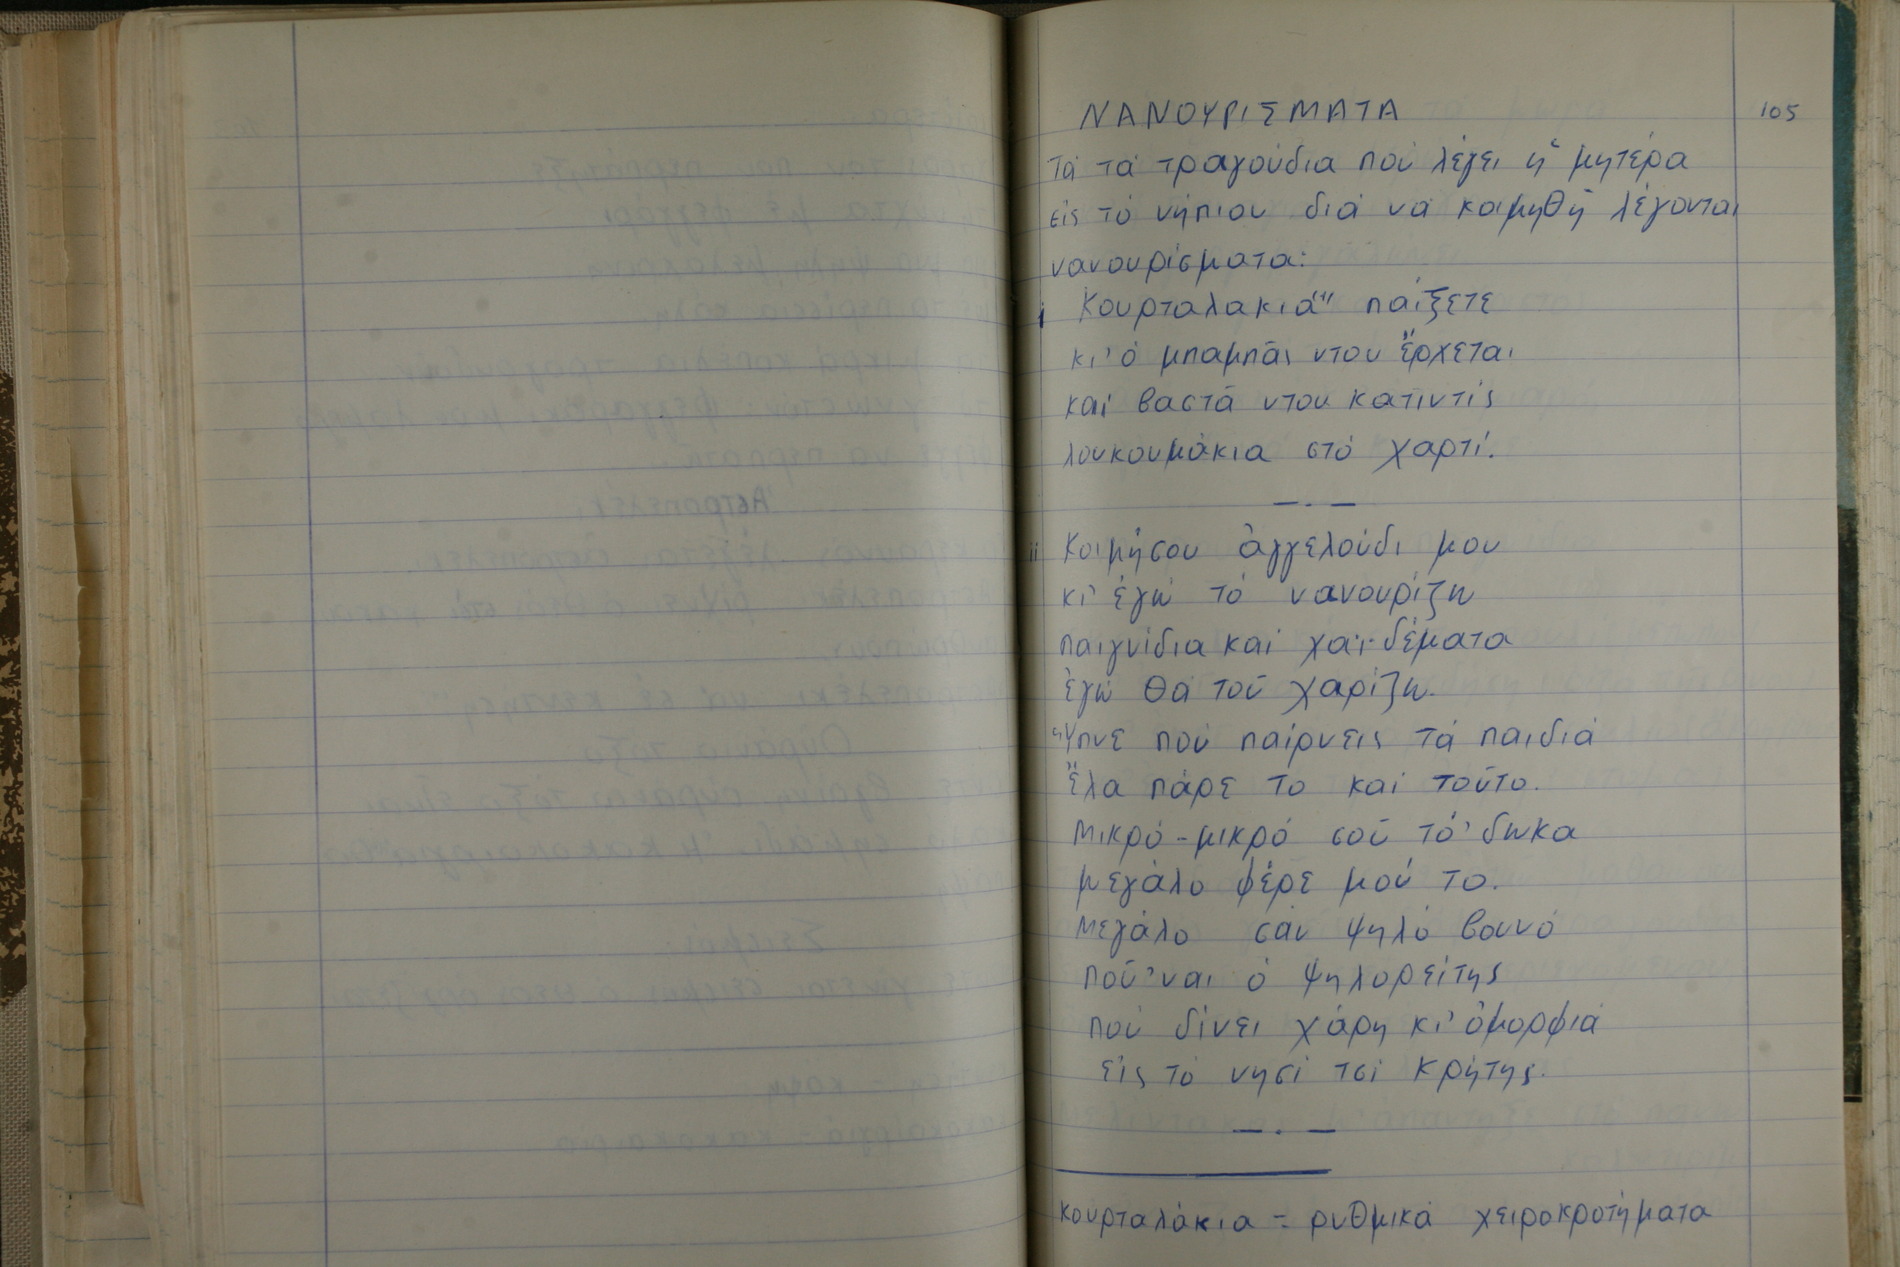 ΝΑΝΟΥΡΙΣΜΑΤΑ
105
Τά τά τραγούδια πού λέγει ἡ μητέρα
εἰς τό νήπιον διά νά κοιμηθῆ λέγονται
νανουρίσματα:
i Κουρταλακιά"" παίξετε
κι' ὁ μπαμπᾶς ντου ἔρχεται
καί βαστᾶ ντου κατιντίς
λουκουμάκια στό χαρτί.
— . —
ii Κοιμήσου ἀγγελούδι μου
κι' ἐγώ τό νανουρίζω
παιγνίδια καί χαϊδέματα
ἐγώ θά τοῦ χαρίζω.
Ὕπνε πού παίρνεις τά παιδιά
ἔλα πάρε το καί τοῦτο.
Μικρό-μικρό σοῦ τό' δωκα
μεγάλο φέρε μού το.
Μεγάλο σάν ψηλό βουνό
ποῦ'ναι ὁ Ψηλορείτης
πού δίνει χάρη κι' ὀμορφιά
εἰς τό νησί τσί Κρήτης.
— . —
Κουρταλάκια = ρυθμικά χειροκροτήματα